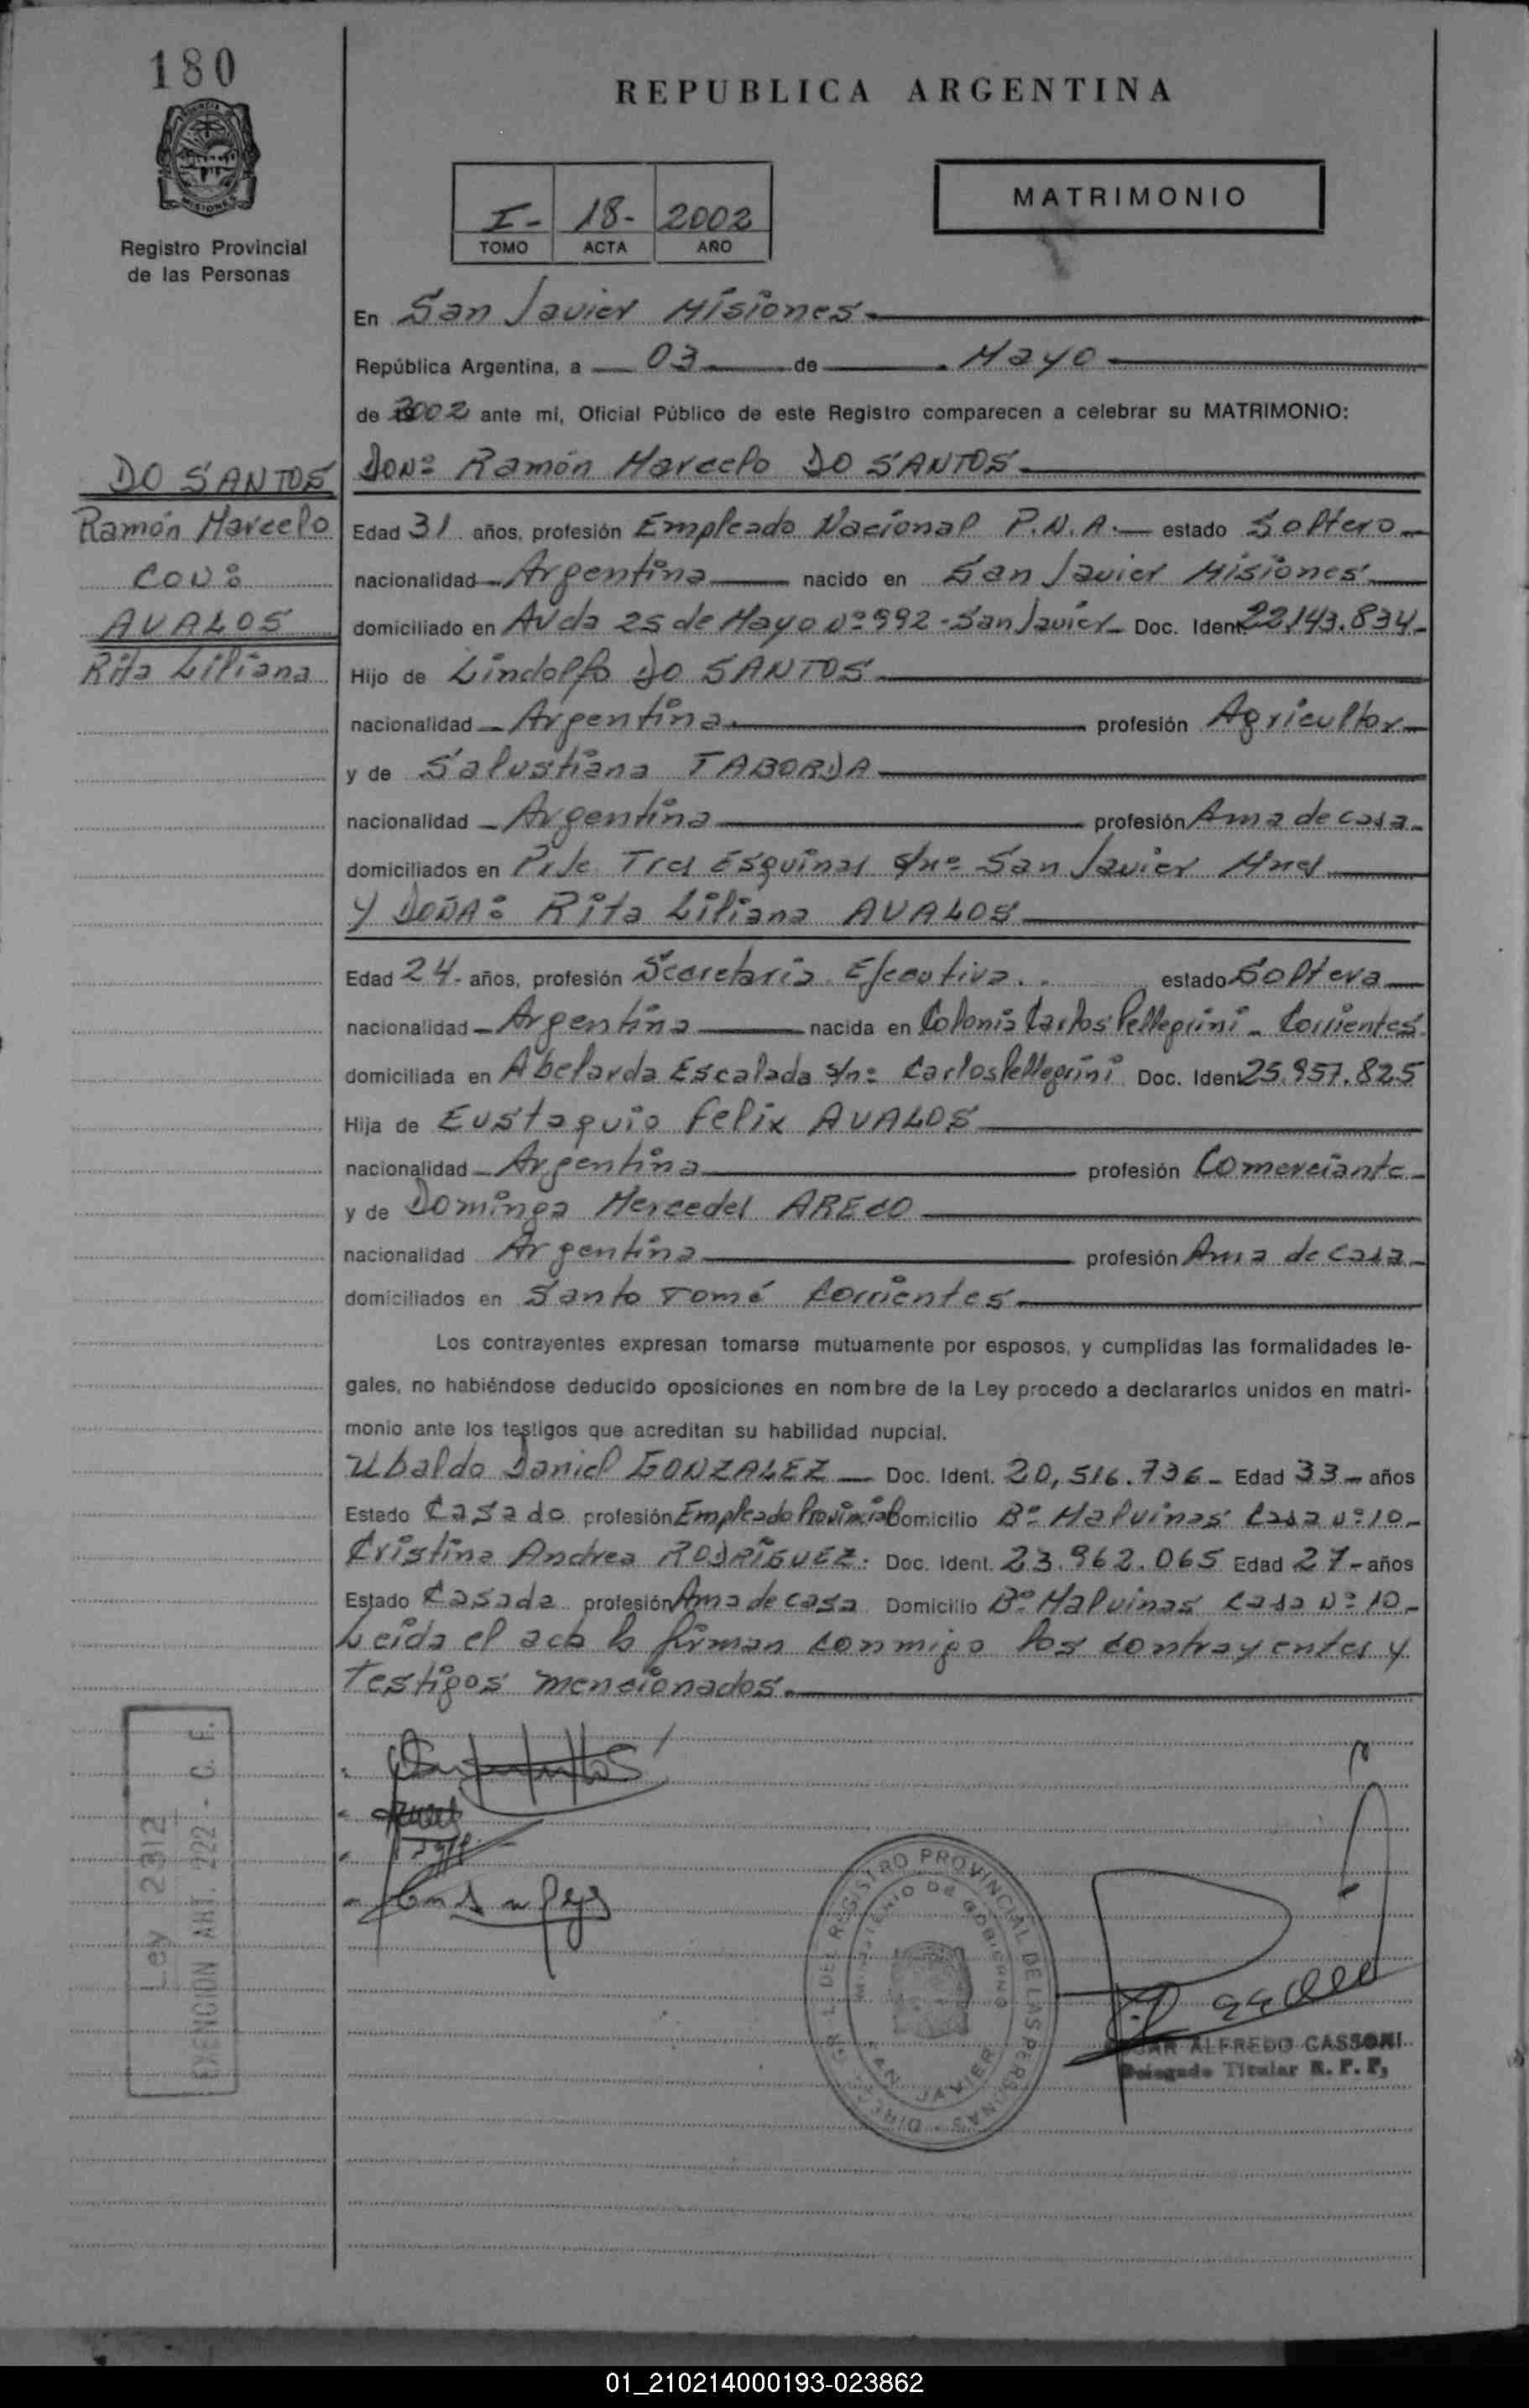 180
REPUBLICA ARGENTINA
I- 18- 2002
TOMO ACTA AÑO
MATRIMONIO
MISIONES
Registro Provincial
de las Personas
En San Javier Misiones
República Argentina, a 03 de Mayo
de 2002 ante mi, Oficial Público de este Registro comparecen a celebrar su MATRIMONIO:
DO SANTOS
Ramón Marcelo
CON:
AVALOS
Rita Liliana
DON: Ramón Marcelo DO SANTOS
Edad 31 años, profesión Empleado Nacional P.N.A. estado Soltero
nacionalidad Argentina nacido en San Javier Misiones
domiciliado en Avda 25 de Mayo Nº 992 - San Javier Doc. Ident. 22.143.834-
Hijo de Lindolfo DO SANTOS
nacionalidad Argentina profesión Agricultor
y de Salustiana TABORDA
nacionalidad Argentina profesión Ama de casa
domiciliados en Pje Tres Esquinas s/nº San Javier Mnes
Y DOÑA: Rita Liliana AVALOS
Edad 24- años, profesión Secretaria Ejecutiva estado Soltera
nacionalidad Argentina nacida en Colonia Carlos Pellegrini - Corrientes
domiciliada en Abelarda Escalada s/nº Carlos Pellegrini Doc. Ident 25.957.825
Hija de Eustaquio Felix AVALOS
nacionalidad Argentina profesión Comerciante
y de Dominga Mercedes ARECO
nacionalidad Argentina profesión Ama de casa
domiciliados en Santo Tomé Corrientes
Los contrayentes expresan tomarse mutuamente por esposos, y cumplidas las formalidades le-
gales, no habiéndose deducido oposiciones en nombre de la Ley procedo a declararlos unidos en matri-
monio ante los testigos que acreditan su habilidad nupcial.
Ubaldo Daniel GONZALEZ Doc. Ident. 20,516.736- Edad 33- años
Estado Casado profesión Empleado Provincial Domicilio Bº Malvinas Casa Nº 10-
Cristina Andrea RODRÍGUEZ: Doc. Ident. 23.962.065 Edad 27- años
Estado Casada profesión Ama de casa Domicilio Bº Malvinas Casa Nº 10-
Leída el acta la firman conmigo los contrayentes y
testigos mencionados.
Ley 2312
EXENCION ART. 222 - C. F.
DEL REGISTRO PROVINCIAL DE LAS PERSONAS
MINISTERIO DE GOBIERNO
SAN JAVIER
ALFREDO CASSONI
Delegado Titular R. P. P.
01_210214000193-023862